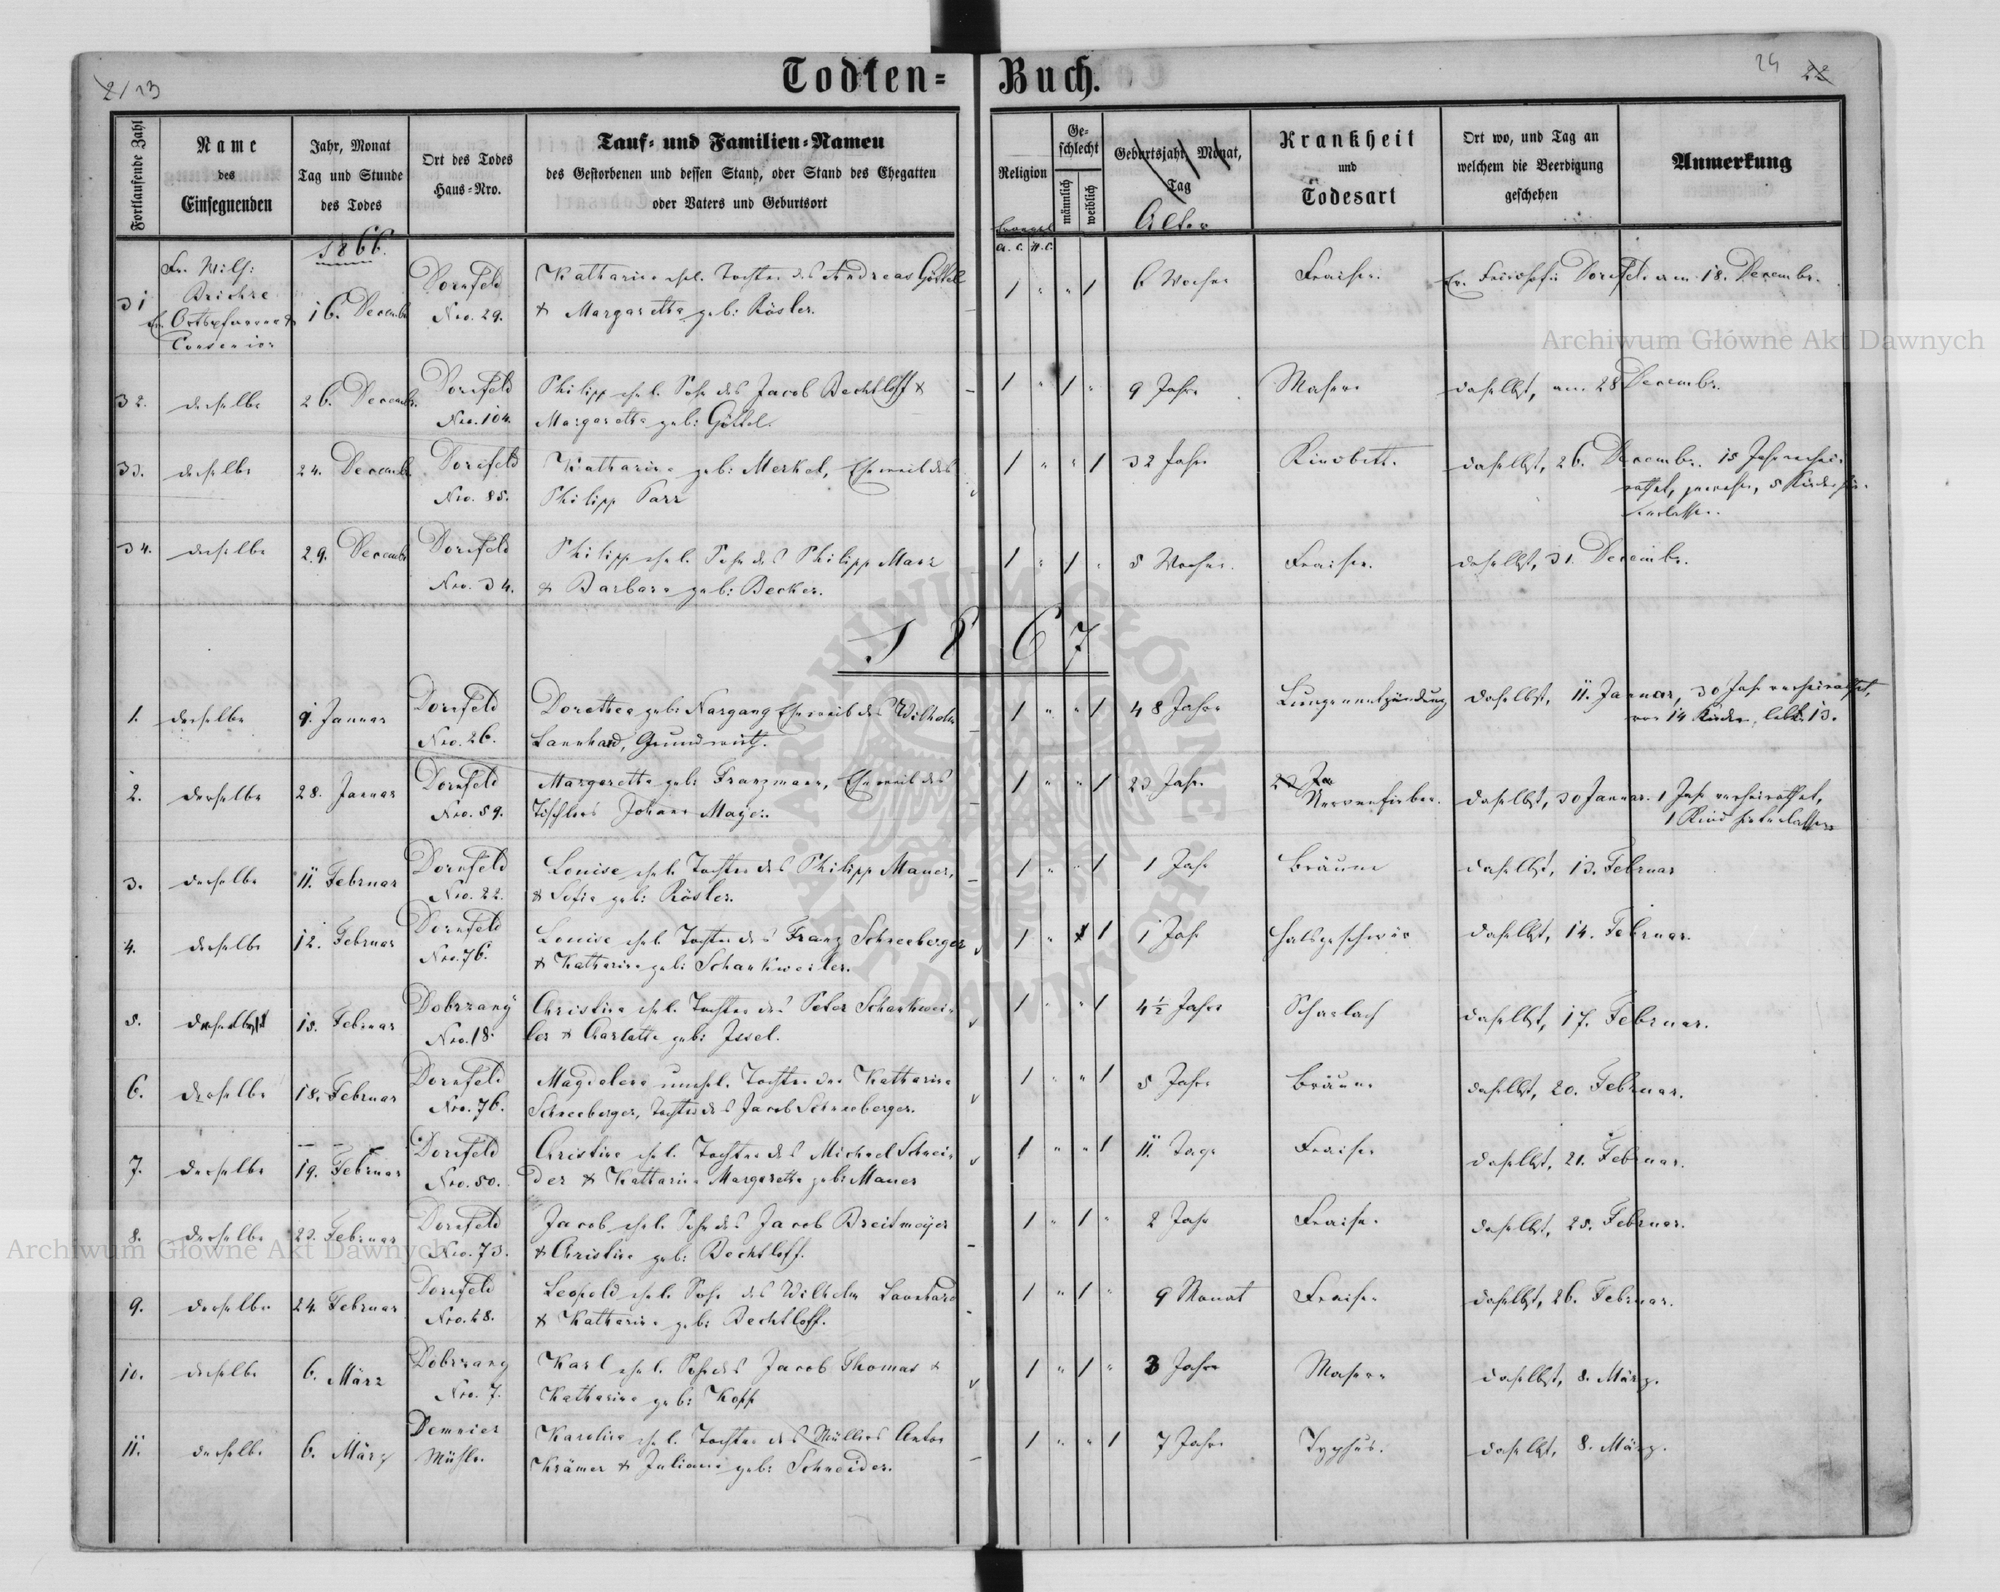 Todten= Buch.
2/ 23
24 22
Fortlaufende Zahl
Name
des
Einsegnenden
Jahr, Monat
Tag und Stunde
des Todes
Ort des Todes
Haus=Nro.
Tauf= und Familien=Namen
des Gestorbenen und dessen Stand, oder Stand des Ehegatten
oder Vaters und Geburtsort
Religion
Ge=
schlecht
männlich
weiblich
Geburtsjahr, Monat,
Tag
Alter
Krankheit
und
Todesart
Ort wo, und Tag an
welchem die Beerdigung
geschehen
Anmerkung
A. C. H. C.
1866.
31 Fr. Wilh:
Ev. Ortspfarrer &
Consenior
16. Decemb
Dornfeld
Nro. 29.
Katharina ehel. Tochter des Andreas Göttel
& Margaretha geb: Rösler.
1 " " 1
6 Wochen
Fraisen.
Ev. Friedhof: Dornfeld am 18. Decembr.
32. derselbe
26. Decemb.
Dornfeld
Nro. 104.
Philipp ehel. Sohn des Jacob Bechtloff &
Margaretha geb: Göttel.
1 " 1 "
9 Jahre
Masern
daselbst, am 28 Decembr.
33. derselbe
24. Decemb.
Dornfeld
Nro. 85.
Katharina geb: Merkel, Eheweib des
Philipp Parr
1 " " 1
32 Jahre
Kindbett.
daselbst, 26. Decembr. 15 Jahr verhei-
rathet, gewesen, 5 Kinder hin-
terlassen.
34. derselbe
29. Decemb
Dornfeld
Nro. 34.
Philipp ehel. Sohn des Philipp Manz
& Barbara geb: Becker.
1 " 1 "
5 Wochen.
Fraisen.
daselbst, 31. Decembr.
1867
1. derselbe
9. Januar
Dornfeld
Nro. 26.
Dorothea geb: Nargang Eheweib des Wilhelm
Lannhard, Grundwirth.
1 " " 1
48 Jahre
Lungenentzündung
daselbst, 11. Januar, 30 Jahr verheirathet,
von 14 Kinder, lebt. 13.
2. derselbe
28. Januar
Dornfeld
Nro. 59.
Margaretha geb: Franzmann, Eheweib des
Tischlers Johann Mayer.
1 " " 1
23 Jahre
Nervenfieber.
daselbst, 30 Januar. 1 Jahr verheirathet,
1 Kind hinterlassen
3. derselbe
11. Februar
Dornfeld
Nro. 22.
Louise ehel. Tochter des Philipp Mauer,
& Sofia geb: Rösler.
1 " " 1
1 Jahr
Bräune
daselbst, 13. Februar
4. derselbe
12. Februar
Dornfeld
Nro. 76.
Louise ehel. Tochter des Franz Schneeberger
& Katharina geb: Schankweiler.
1 " 1
1 Jahr
Halsgeschwür
daselbst, 14. Februar.
5. derselbe
15. Februar
Dobrzany
Nro. 18.
Christina ehel. Tochter des Peter Schankwei-
ler & Charlotte geb: Issel.
1 " " 1
4½ Jahre
Scharlach
daselbst, 17. Februar.
6. derselbe
18. Februar
Dornfeld
Nro. 76.
Magdalena unehel. Tochter der Katharina
Schneeberger, Tochter des Jacob Schneeberger.
1 " " 1
5 Jahre
Bräune
daselbst, 20. Februar.
7. derselbe
19. Februar
Dornfeld
Nro. 50.
Christina ehel. Tochter des Michael Schnei-
der & Katharina Margaretha geb: Mauer
1 " " 1
11. Tage
Fraisen
daselbst, 21. Februar.
8. derselbe
23. Februar
Dornfeld
Nro. 73.
Jacob ehel. Sohn des Jacob Breitmeyer
& Christina geb: Bechtloff.
1 " 1 "
2 Jahr
Fraisen.
daselbst, 25. Februar.
9. derselbe
24. Februar
Dornfeld
Nro. 28.
Leopold ehel. Sohn des Wilhelm Lannhard
& Katharina geb: Bechtloff.
1 " 1 "
9 Monat
Fraisen
daselbst, 26. Februar.
10. derselbe
6. März
Dobrzany
Nro. 7.
Karl ehel. Sohn des Jacob Thomas &
Katharina geb: Kopp
1 " 1 "
3 Jahre
Masern
daselbst, 8. März.
11. derselbe
6. März
Demnier
Mühle.
Karolina ehel. Tochter des Müllers Anton
Krämer & Juliana geb: Schneider.
1 " " 1
7 Jahre
Typhus.
daselbst, 8. März.
Archiwum Główne Akt Dawnych
Archiwum Główne Akt Dawnych
ARCHIWUM GŁÓWNE AKT DAWNYCH